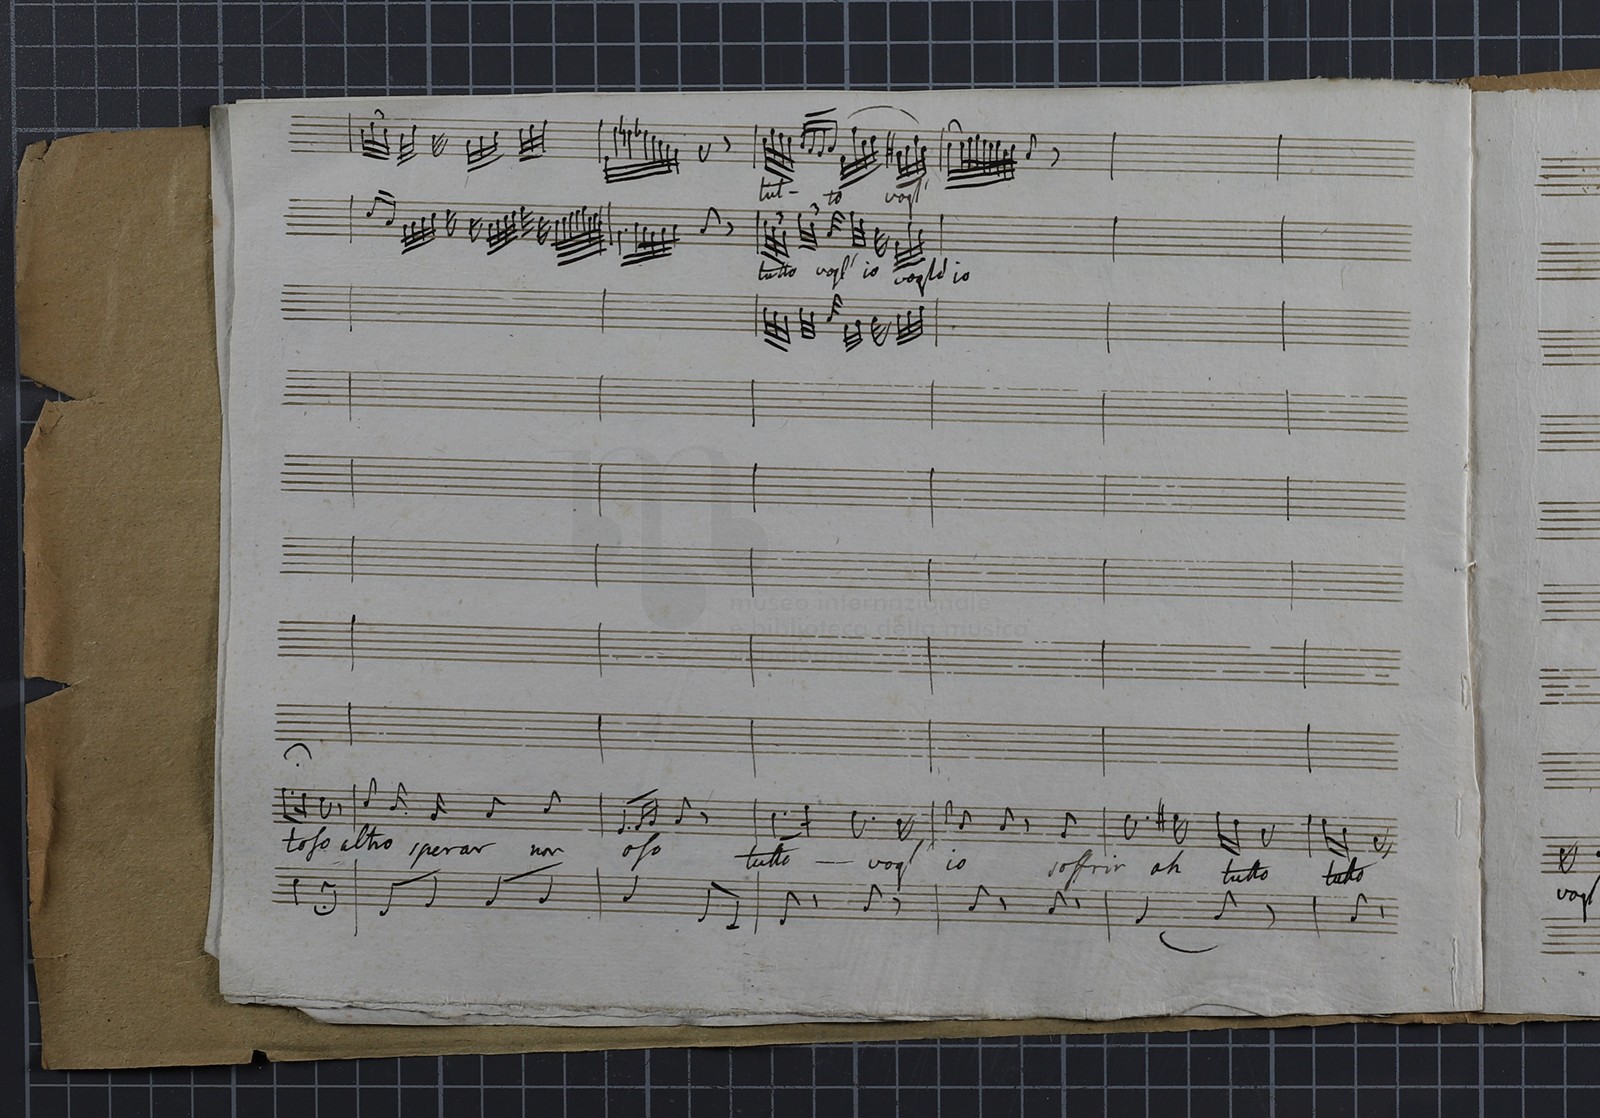 tut- to vogl'
tutto vogl' io vogl' io
museo internazionale
e biblioteca della musica
toso altro sperar non oso tutto — vogl' io soffrir ah tutto tutto
vogl